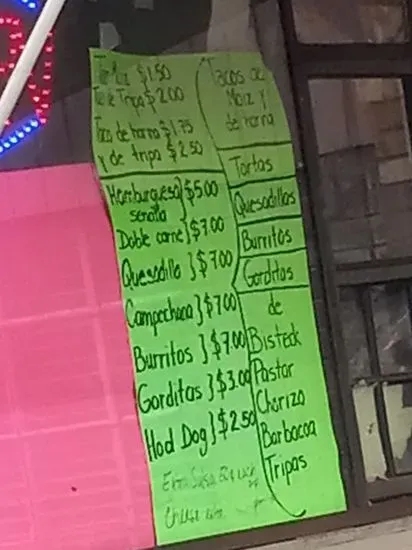 Maiz $1.50
de Tripa $2.00
Taco de harina $1.75
y de tripa $2.50
Hamburguesa
sencilla } $5.00
Doble carne } $7.00
Quesadilla } $7.00
Campechana } $7.00
Burritos } $7.00
Gorditas } $3.00
Hod Dog } $2.50
Extra Salsa
Tacos de
Maiz y
de harina
Tortas
Quesadillas
Burritos
Gorditas
de
Bisteck
Pastor
Chorizo
Barbacoa
Tripas